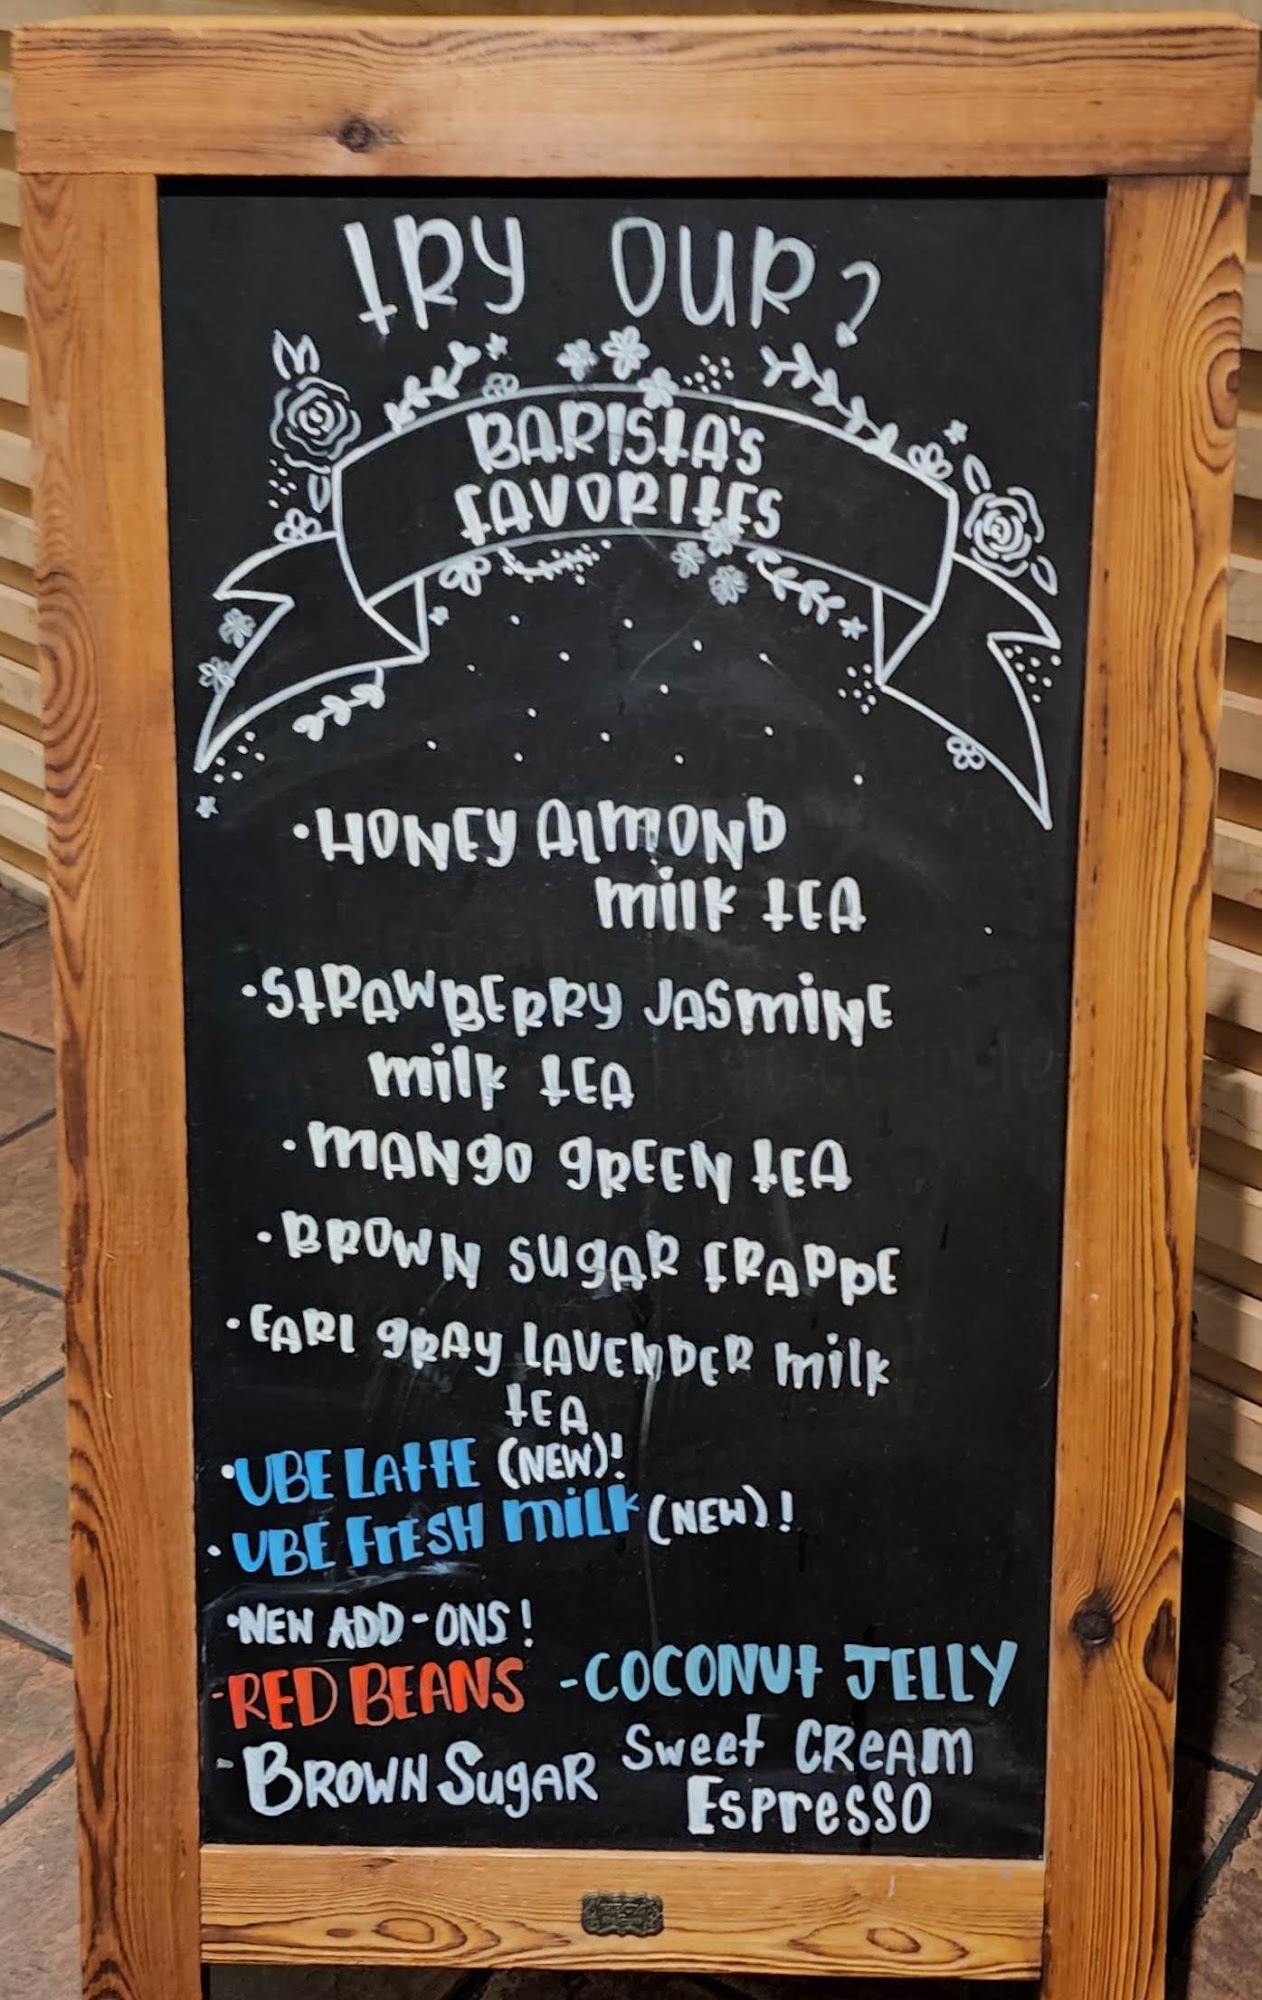 TRY OUR
BARISTA'S
FAVORITES
• HONEY ALMOND
MILK TEA
• STRAWBERRY JASMINE
MILK TEA
• MANGO GREEN TEA
• BROWN SUGAR FRAPPE
• EARL GRAY LAVENDER MILK
TEA
• UBE LATTE (NEW)!
• UBE FRESH MILK (NEW)!
• NEW ADD-ONS!
- RED BEANS - COCONUT JELLY
- BROWN SUGAR Sweet CREAM
Espresso